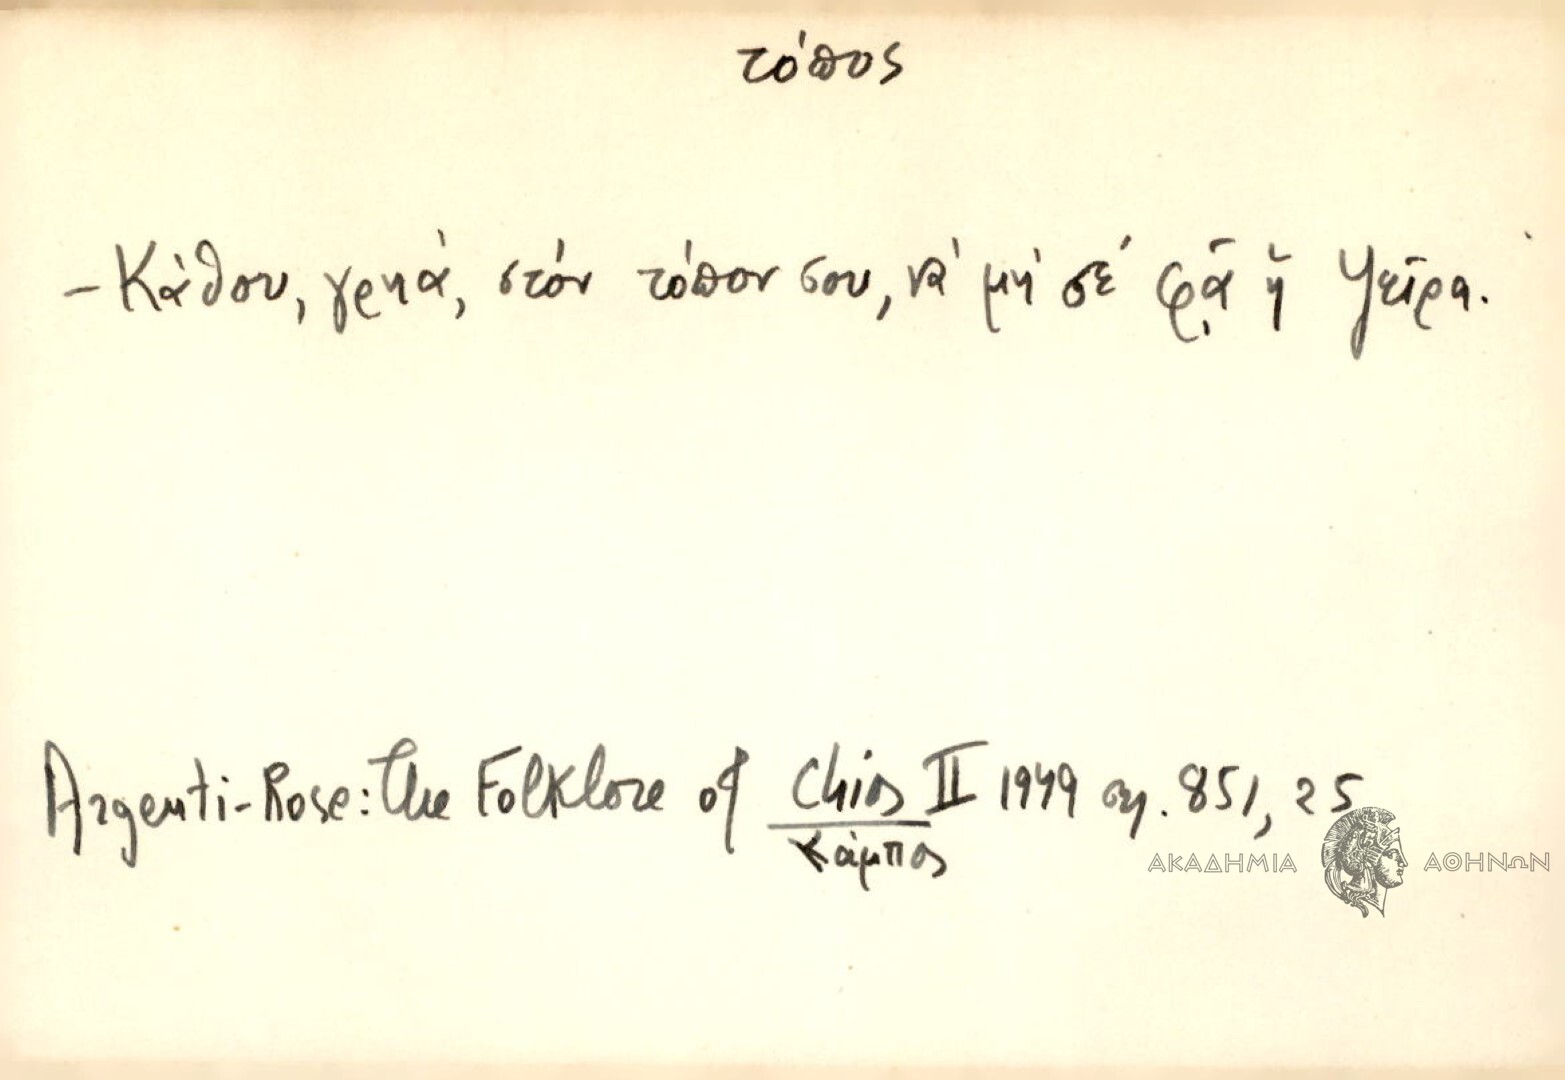 τόπος
- Κάθου, γρηά, στόν τόπον σου, νά μή σέ φᾷ ἡ ψεῖρα.
Argenti-Rose: The Folklore of Chios II 1949 ση. 851, 25
Κάμπος
ΑΚΑΔΗΜΙΑ ΑΘΗΝΩΝ